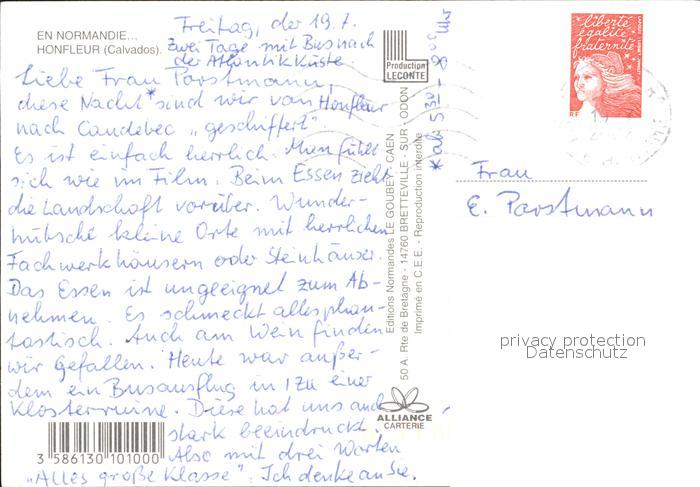 EN NORMANDIE...
HONFLEUR (Calvados).
Freitag, der 19.7.
zwei Tage mit Bus nach
der Atlantikküste.
Liebe Frau Porstmann,
diese Nacht* sind wir von Honfleur
nach Caudebec „geschiffert".
Es ist einfach herrlich. Man fühlt
sich wie im Film. Beim Essen zieht
die Landschaft vorüber. Wunder-
hübsche kleine Orte mit herrlichen
Fachwerkhäusern oder Steinhäuser.
Das Essen ist ungeeignet zum Ab-
nehmen. Es schmeckt alles phan-
tastisch. Auch am Wein finden
wir Gefallen. Heute war außer-
dem ein Busausflug in zu einer
Klosterruine. Diese hat uns auch
stark beeindruckt.
Also mit drei Worten
„Alles große Klasse". Ich denke an Sie.
*ab 5 30 - 8 00 Uhr
Production
LECONTE
Editions Normandes LE GOUBEY - CAEN
50 A. Rte de Bretagne - 14760 BRETTEVILLE - SUR - ODON
Imprimé en C.E.E. - Reproduction interdite
ALLIANCE
CARTERIE
3 586130 101000
liberté
égalité
fraternité
RF
Frau
E. Porstmann
privacy protection
Datenschutz